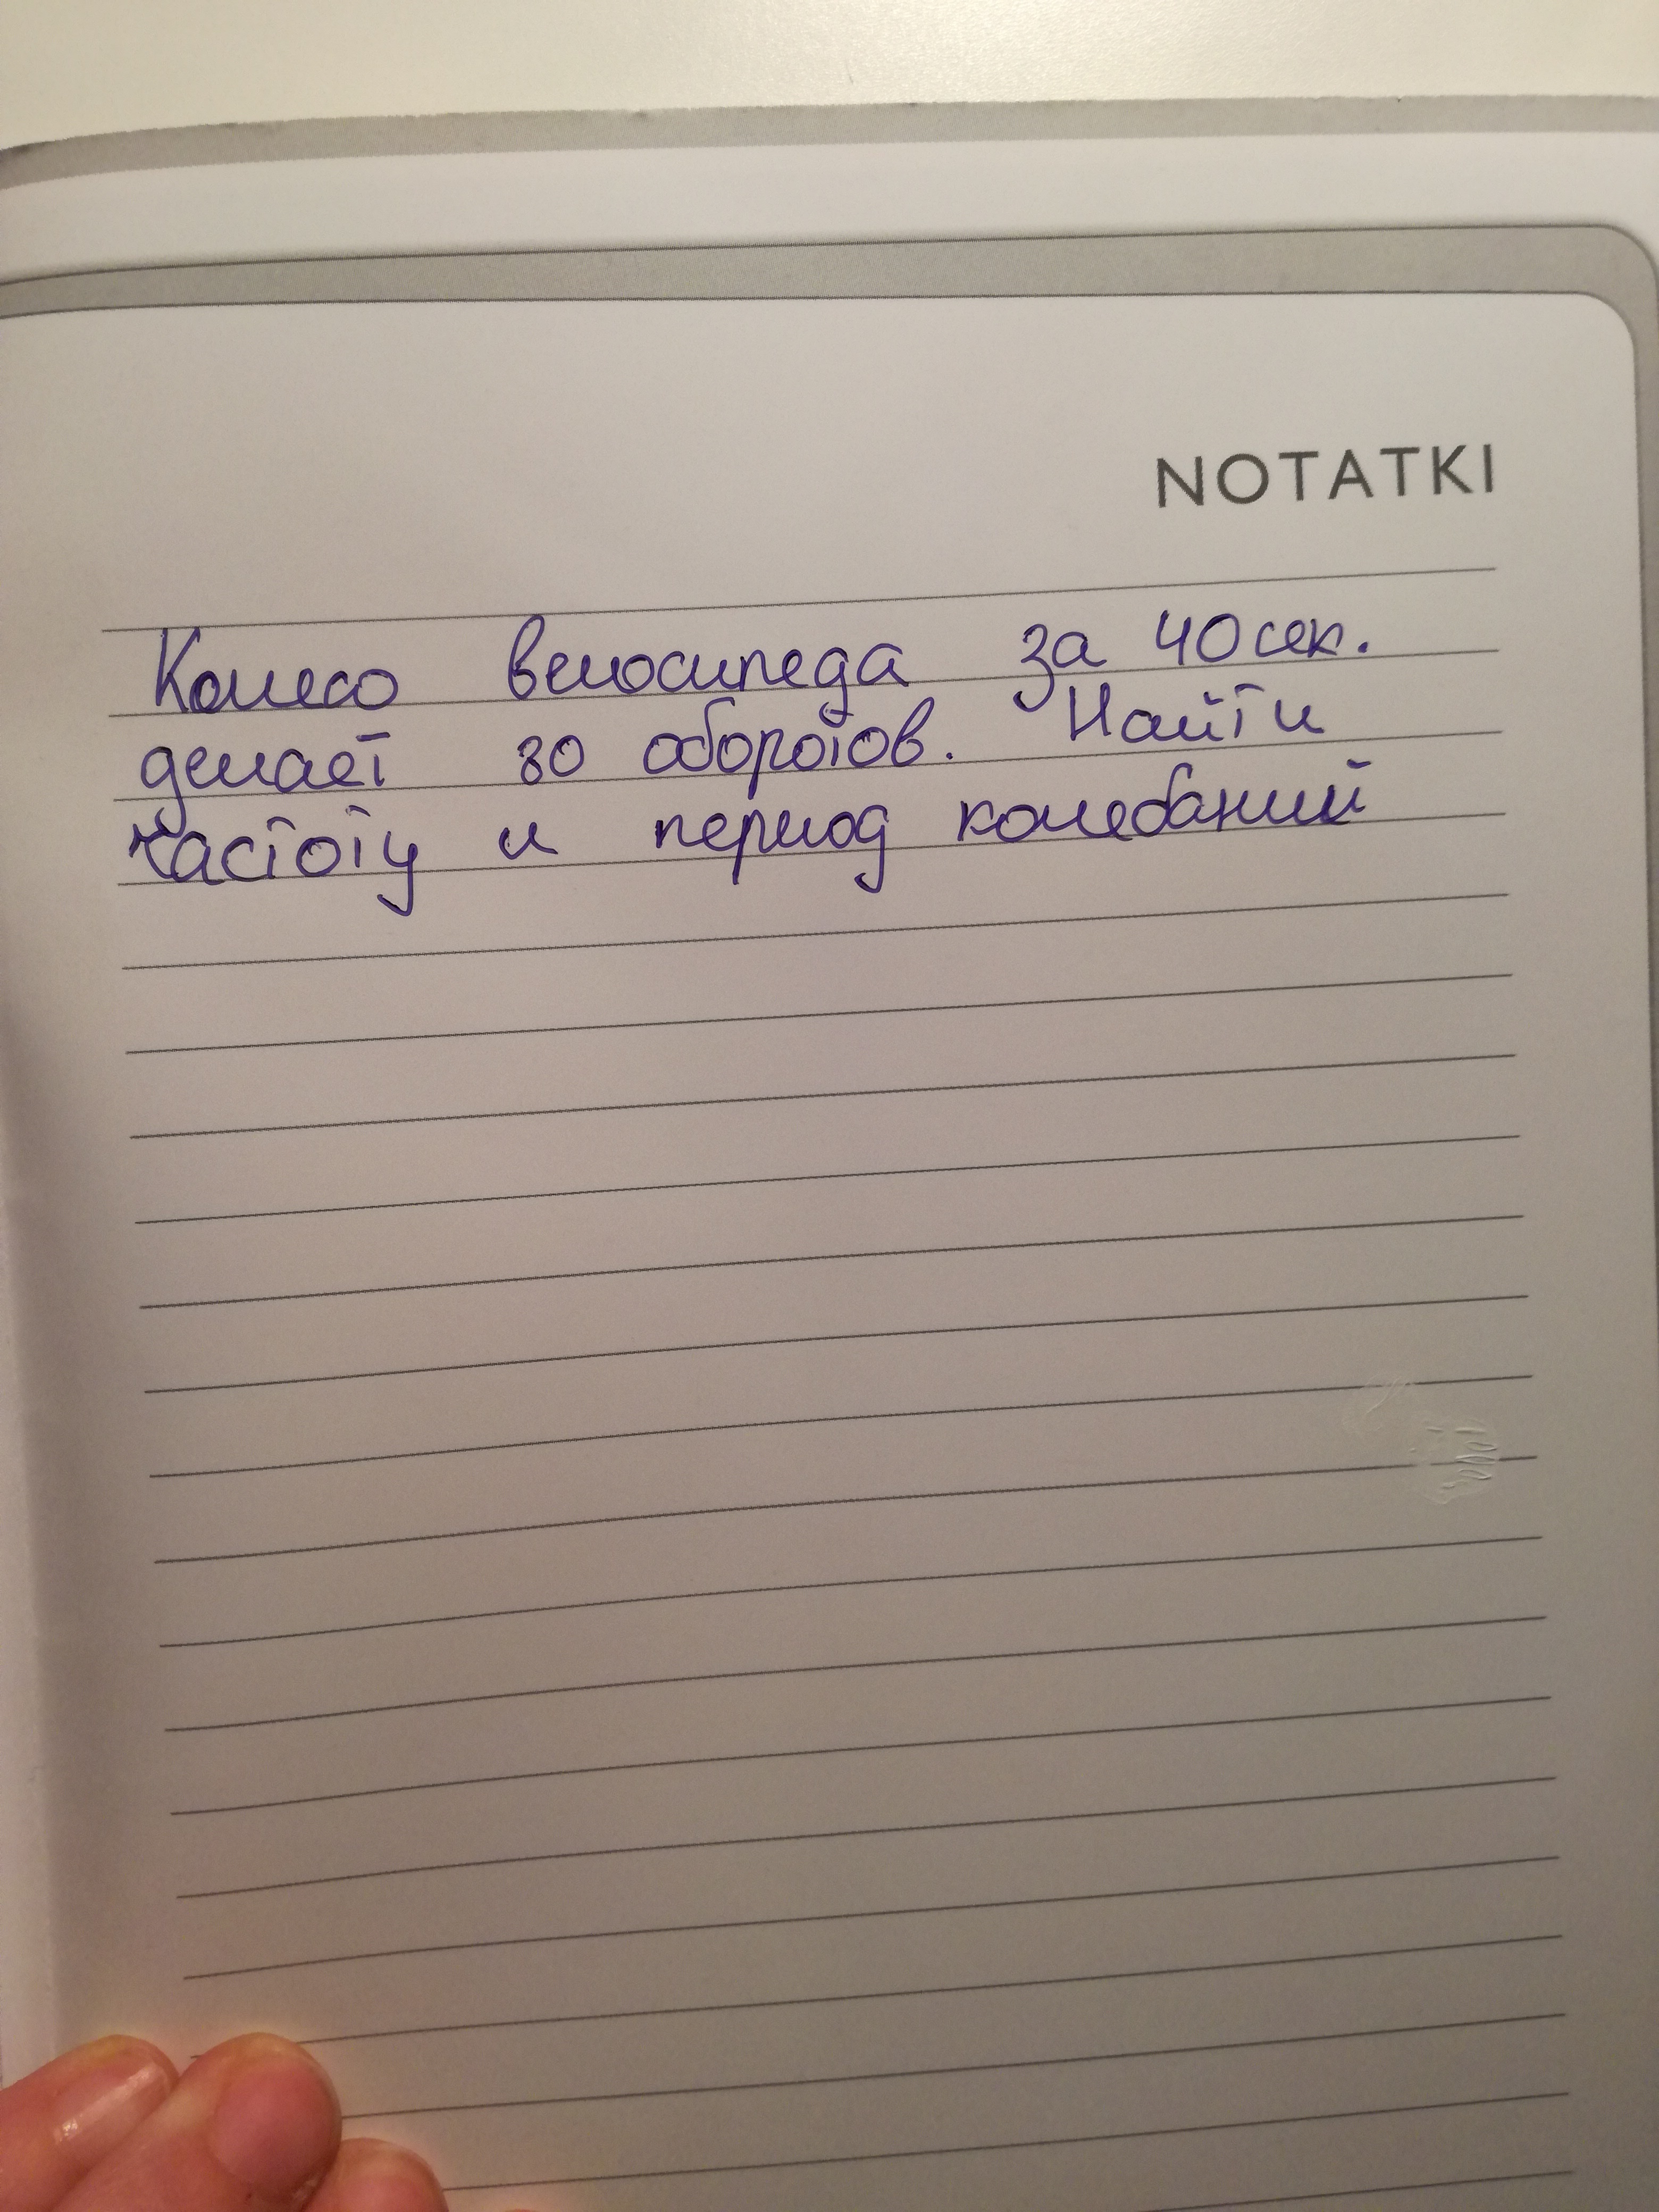 NOTATKI
Колесо велосипеда за 40 сек.
делает 80 оборотов. Найти
частоту и период колебаний